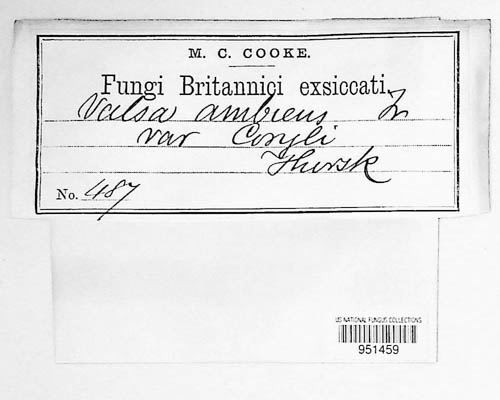 M. C. COOKE.
Fungi Britannici exsiccati
Valsa ambiens Fr
var Coryli
Thursk
No. 487
US NATIONAL FUNGUS COLLECTIONS
951459